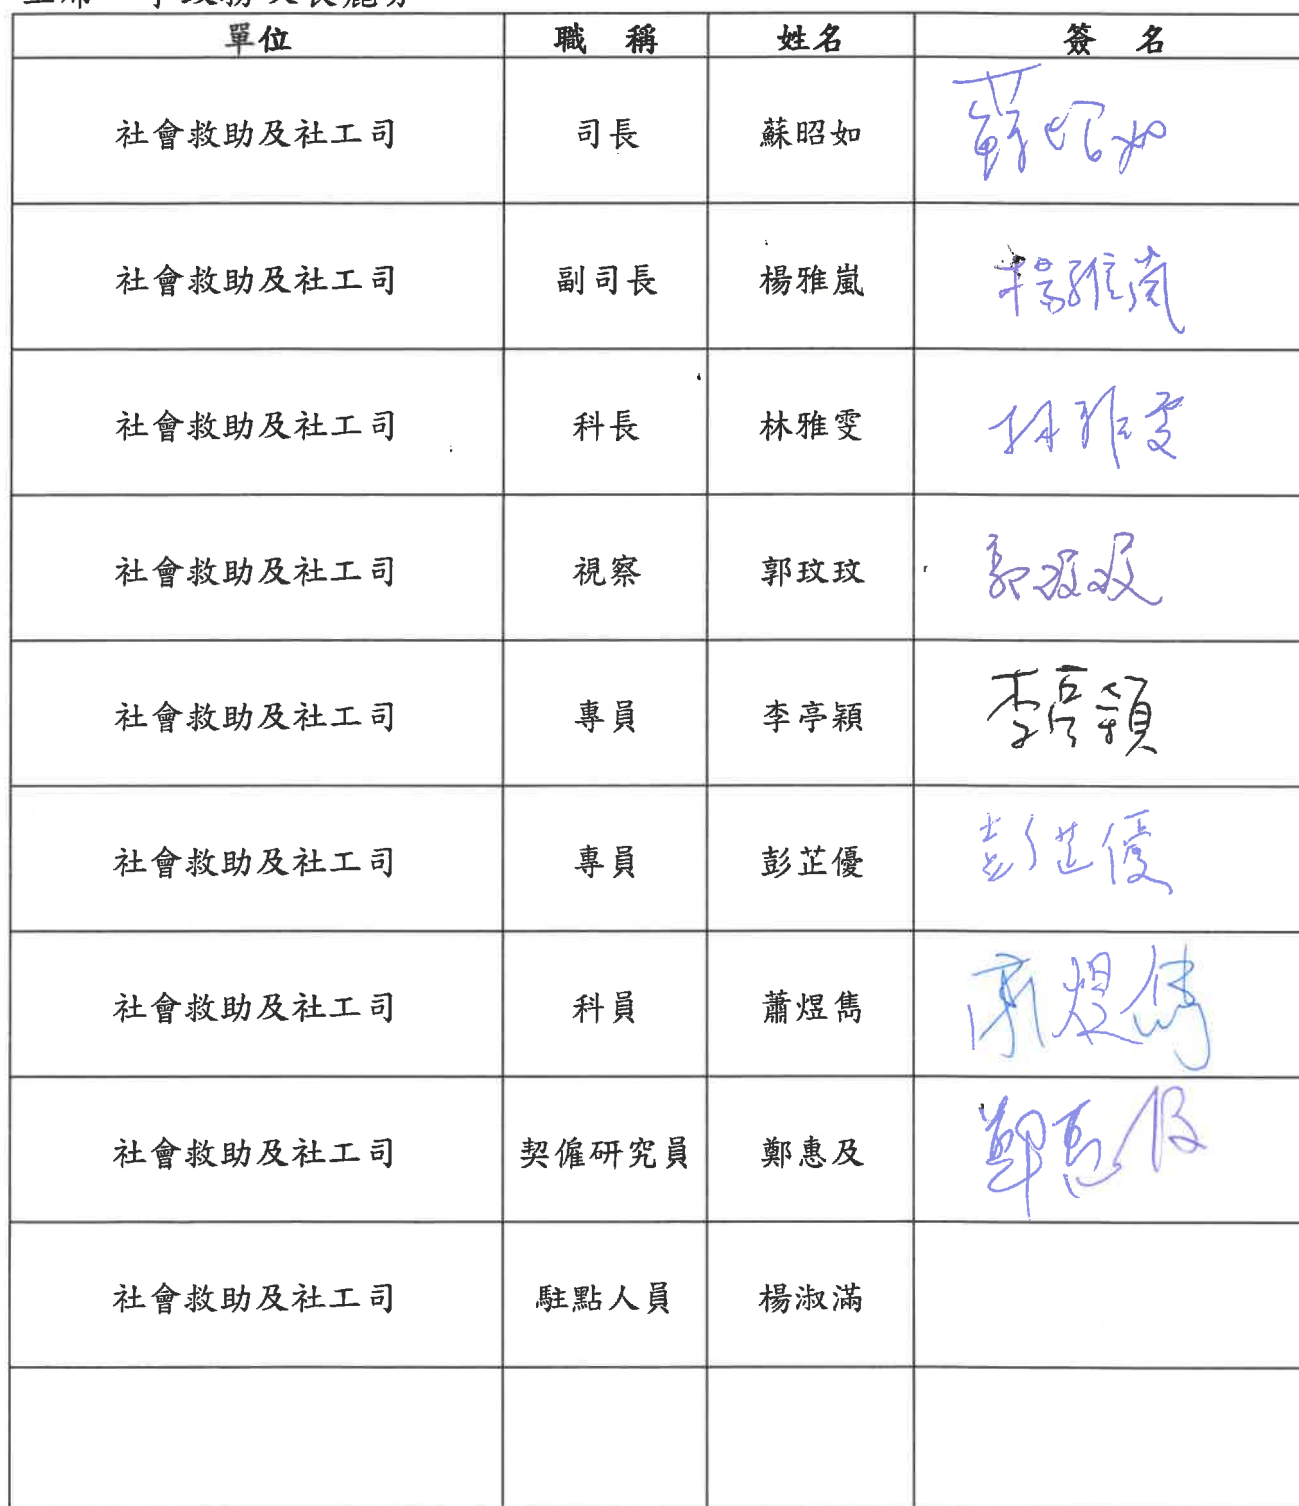 單位 職 稱 姓名 簽 名
社會救助及社工司 司長 蘇昭如 蘇昭如
社會救助及社工司 副司長 楊雅嵐 楊雅嵐
社會救助及社工司 科長 林雅雯 林雅雯
社會救助及社工司 視察 郭玟玟 郭玟玟
社會救助及社工司 專員 李亭穎 李亭穎
社會救助及社工司 專員 彭芷優 彭芷優
社會救助及社工司 科員 蕭煜雋 蕭煜雋
社會救助及社工司 契僱研究員 鄭惠及 鄭惠及
社會救助及社工司 駐點人員 楊淑滿